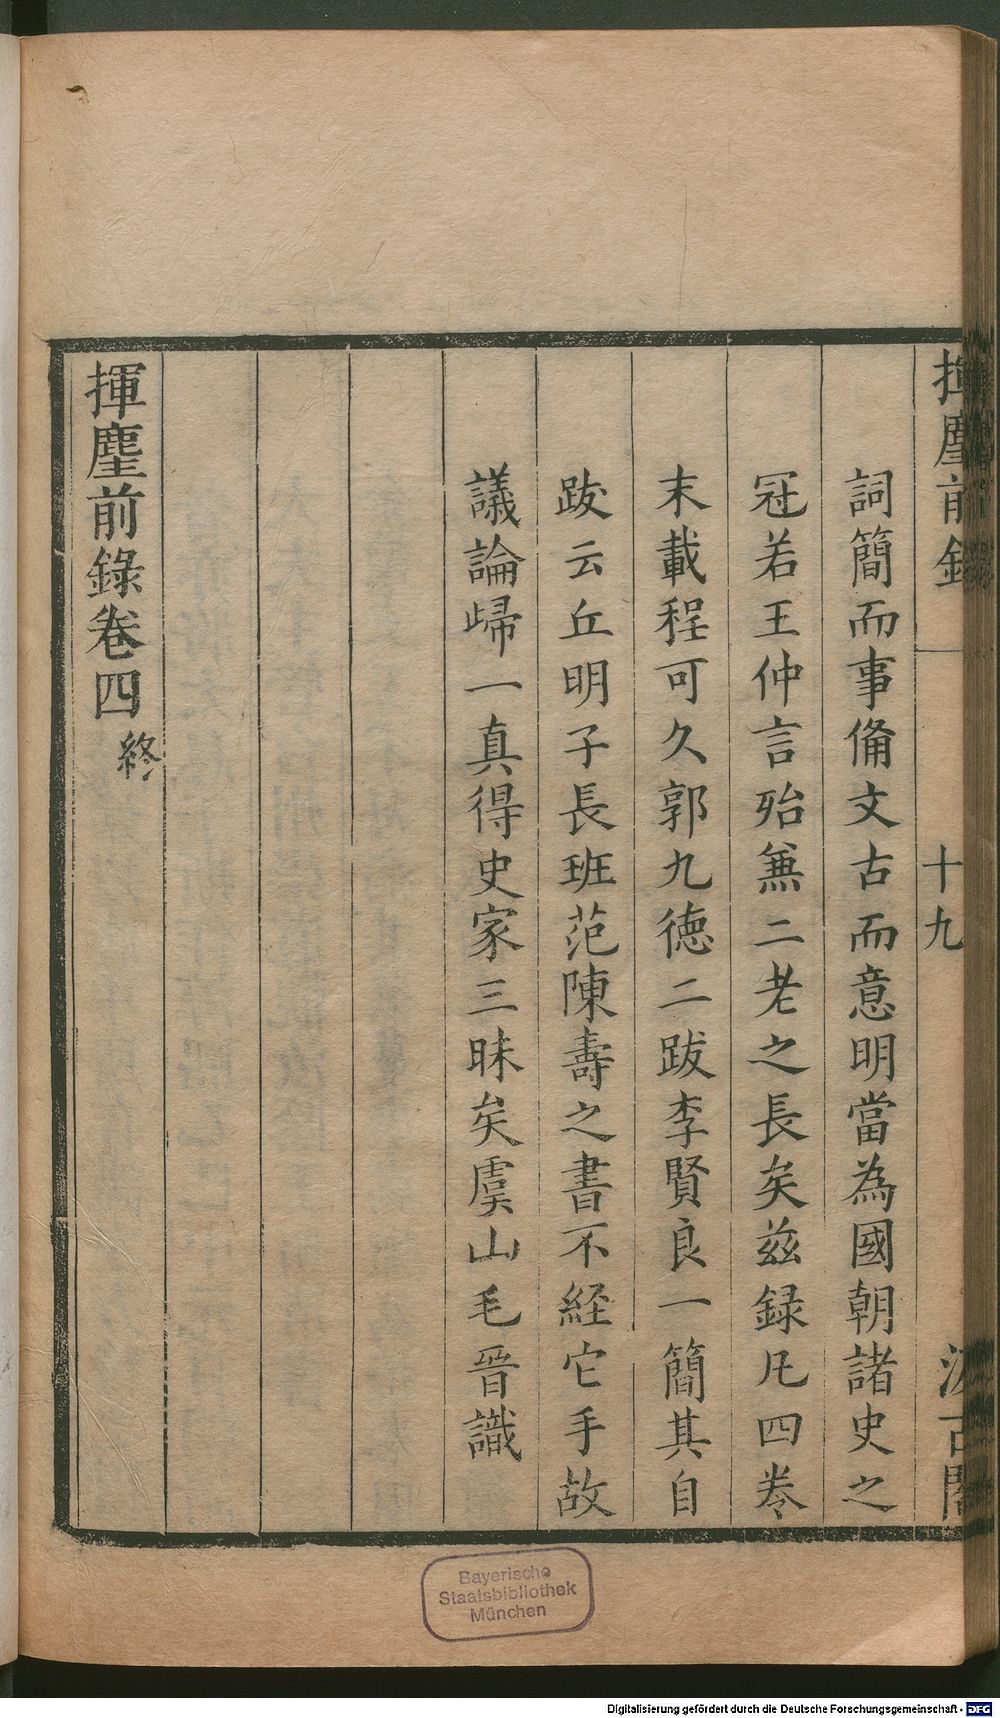 揮麈前錄
十九
汲古閣
詞簡而事俻文古而意明當為國朝諸史之
冠若王仲言殆兼二老之長矣兹録凡四卷
末載程可久郭九德二跋李賢良一簡其自
跋云丘明子長班范陳壽之書不經它手故
議論歸一真得史家三昧矣虞山毛晉識
揮麈前錄卷四
終
Bayerische
Staatsbibliothek
München
Digitalisierung gefördert durch die Deutsche Forschungsgemeinschaft - DFG